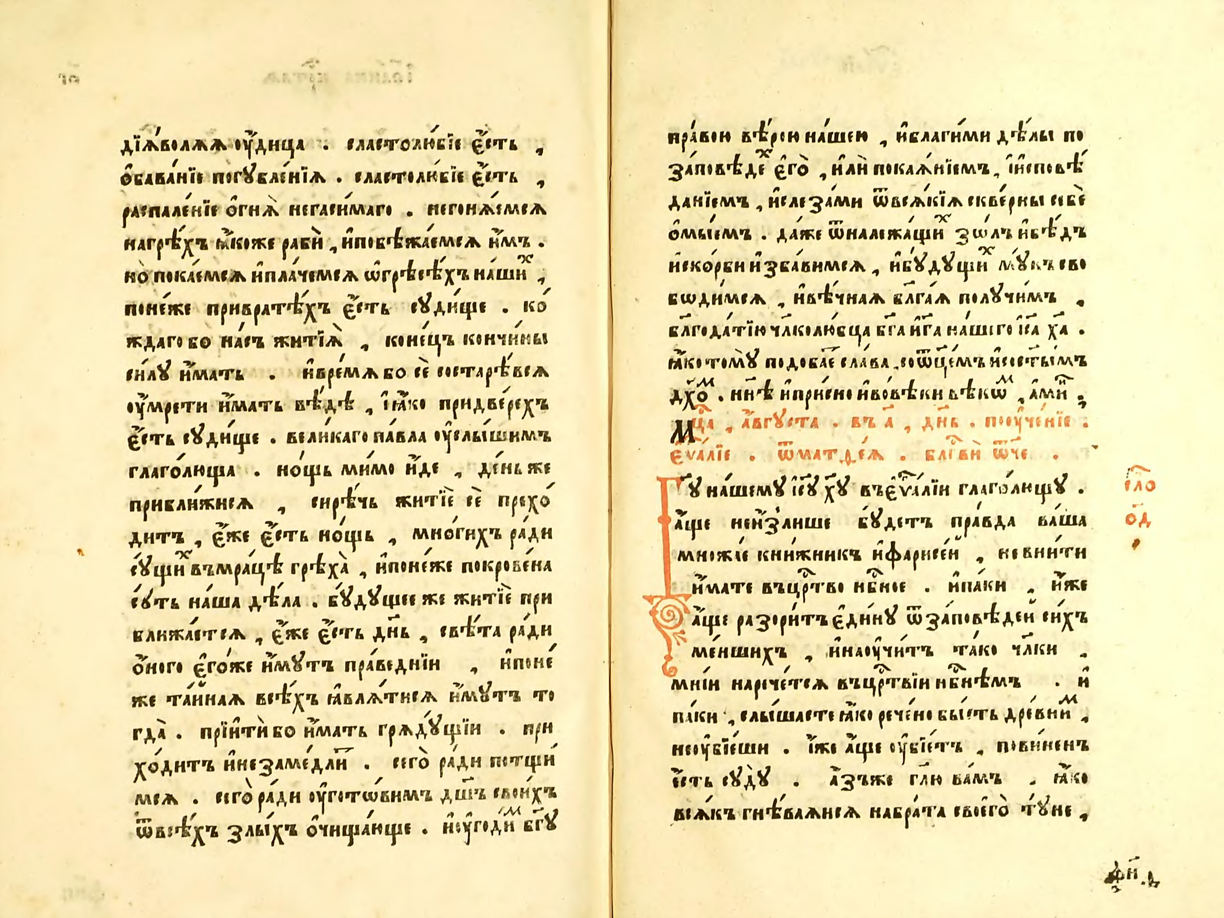 дїѧ́волѧѧ ᲂу҆́дица . сластолю́бїе є҆́сть ,
ѡ҆бава́нїе погꙋбле́нїѧ . сластолю́бїе є҆́сть ,
распале́нїе ѻ҆гнѧ̀ негаси́маго . негонѧ́емсѧ
нагрѣ́хъ ꙗ҆́коже рабѝ , и҆побѣжа́емсѧ и҆́мъ .
но пока́емсѧ и҆пла́чемсѧ ѡ҆грѣсѣ́хъ на́шиⷯ ,
поне́же привратѣ́хъ є҆́сть сꙋди́ще . ко́
ждаго бо на́съ житїѧ̀ , коне́цъ кончи́ны
си́лꙋ и҆́мать . и҆вре́мѧ бо сѐ состарѣ́всѧ
ᲂу҆мре́ти и҆́мать вѣ́дѣ , і҆ꙗ҆́ко придве́рехъ
є҆́сть сꙋди́ще . вели́каго па́вла ᲂу҆слы́шимъ
глаго́люща . но́щь ми́мо и҆́де , де́нь же
прибли́жисѧ , си́рѣчь житїѐ сѐ прехо́
дитъ , є҆́же є҆́сть но́щь , мно́гихъ ра́ди
сꙋ́щиⷯ въмра́цѣ грѣха̀ , и҆поне́же покрове́на
сꙋ́ть на́ша дѣ́ла . бꙋ́дꙋщее же житїѐ при
ближа́етсѧ , є҆́же є҆́сть дн҃ь , свѣ́та ра́ди
ѻ҆́ного є҆го́же и҆́мꙋтъ пра́веднїи , и҆поне́
же та́йнаѧ всѣ́хъ ꙗ҆влѧ́тисѧ и҆́мꙋтъ то
гда̀ . прїити́ бо и҆́мать грѧдꙋ́щїи . при
хо́дитъ и҆незаме́длиⷮ . сего̀ ра́ди потщи́
мсѧ . сего̀ ра́ди ᲂу҆гото́вимъ дш҃ъ свои́хъ
ѿвсѣ́хъ ѕлы́хъ ѡ҆чища́юще . и҆ᲂу҆годи́ⷨ бг҃ꙋ
пра́вою вѣ́рою на́шею , и҆благи́ми дѣ́лы по
за́повѣдеⷯ є҆го̀ , и҆лѝ покаѧ́нїемъ , і҆и҆сповѣ́
данїемъ , и҆слеза́ми ѿвсѧ́кїѧ скве́рны себѐ
ѡ҆мы́емъ . да́же ѿналежа́щиⷯ ѕо́лъ и҆бѣ́дъ
и҆ско́рби и҆зба́вимсѧ , и҆бꙋ́дꙋщиⷯ мꙋ́къ сво
бѡди́мсѧ , и҆вѣ́чнаѧ бл҃га́ѧ полꙋ́чимъ ,
бл҃года́тїю чл҃колю́бца бг҃а и҆г҃а на́шего і҆с҃а х҃а .
ꙗ҆́ко томꙋ̀ подоба́еⷮ сла́ва , соѻц҃е́мъ и҆сост҃ы́мъ
дх҃оⷨ . нн҃ѣ и҆при́сно и҆вовѣ́ки вѣкѡ́ⷨ , а҆ми́нь ,
Мц҃а , а҆́вгꙋста . въ а҃ , дн҃ь . поᲂуче́нїе .
є҆ѵⷢ҇а́лїе . ѿматѳе́ѧ . бл҃гви́ ѻ҆́ч҃е .
Гꙋ нашемꙋ і҆сꙋ хꙋ въє҆ѵⷢ҇а́лїи глаго́лющꙋ .
а҆́ще неи҆зли́ше бꙋ́детъ пра́вда ва́ша
мно́жае кни́жникъ и҆фарисе́й , невни́ти
и҆́мате въцрⷭ҇тво нбⷭ҇ное . и҆па́ки , и҆́же
а҆́ще разори́тъ є҆ди́нꙋ ѿза́повѣдей си́хъ
ме́ншихъ , и҆наᲂу҆чи́тъ та́ко чл҃ки ,
мні́и нарече́тсѧ въцрⷭ҇твїи нбⷭ҇нѣмъ . и҆
па́ки , слы́шасте ꙗ҆́ко рече́но бы́сть дре́внїиⷨ ,
неᲂу҆бїе́ши . і҆́же а҆́ще ᲂу҆бїе́тъ , пови́ненъ
є҆́сть сꙋдꙋ̀ . а҆́зъже гл҃ю ва́мъ . ꙗ҆́ко
всѧ́къ гнѣ́ваѧисѧ набра́та своего̀ тꙋ́не ,
сло
ѻ҆д